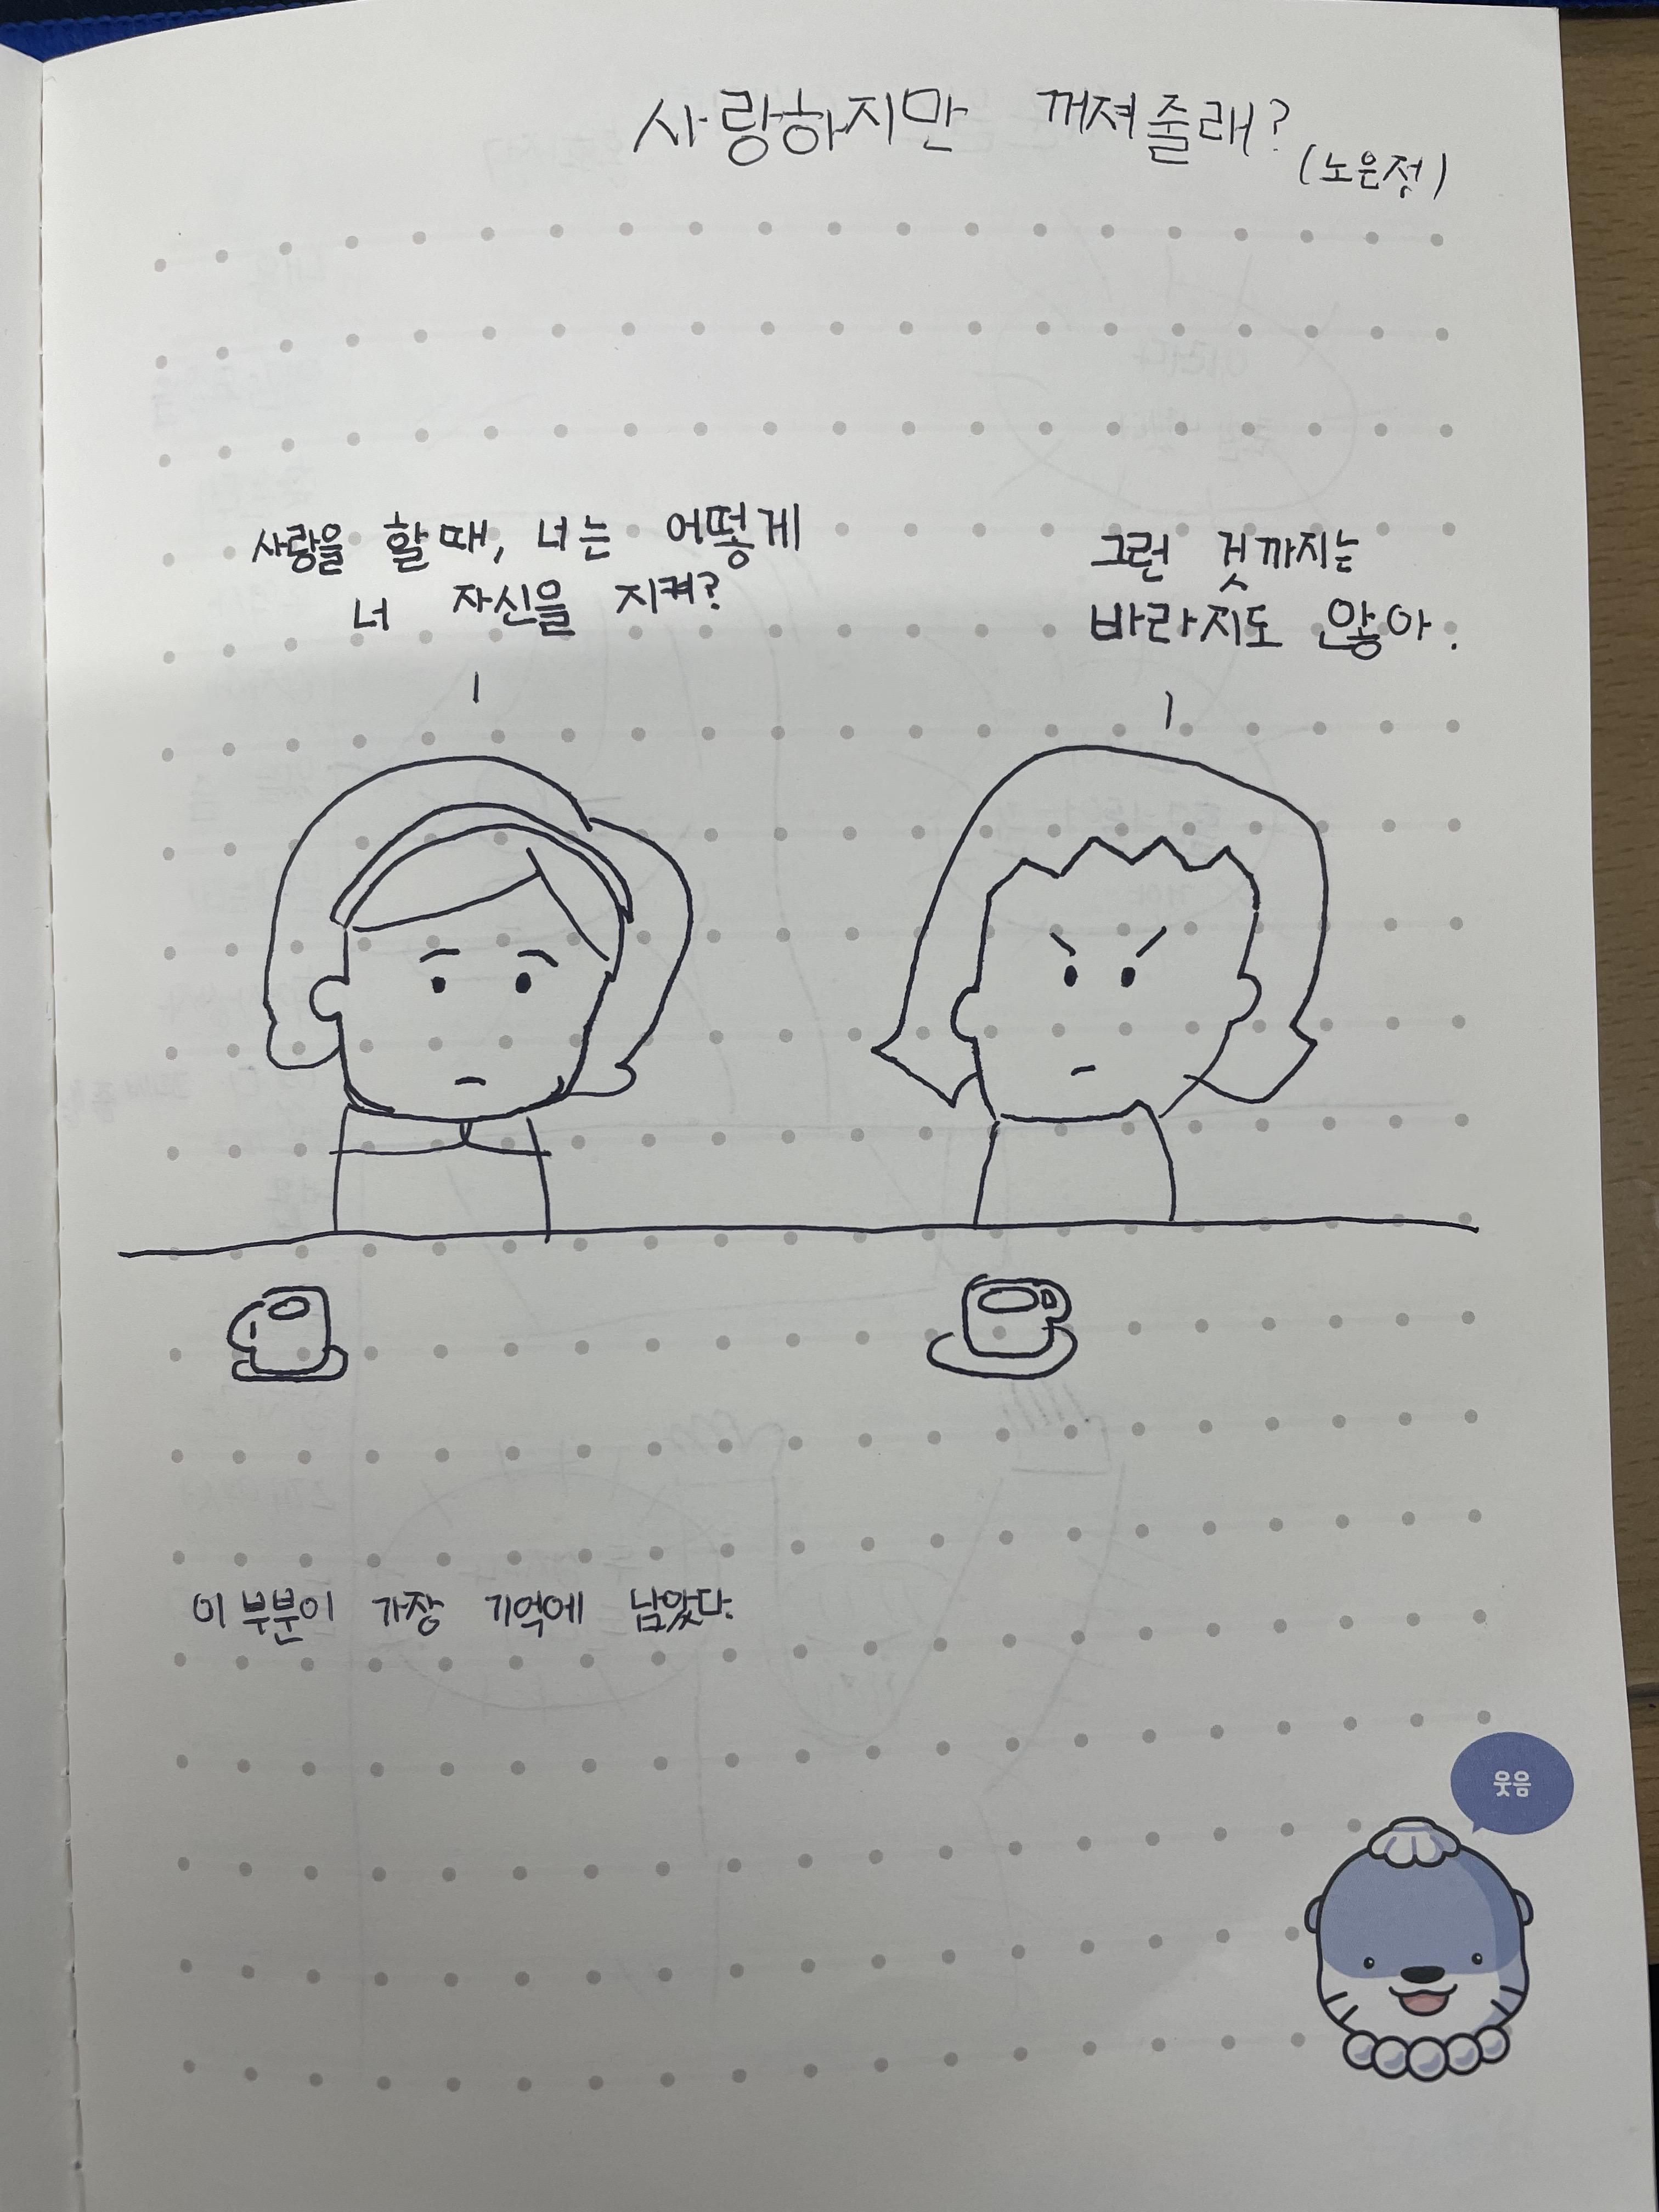 사랑하지만 꺼져줄래?
(노은정)
사랑을 할 때, 너는 어떻게
너 자신을 지켜?
그런 것까지는
바라지도 않아.
이 부분이 가장 기억에 남았다.
웃음